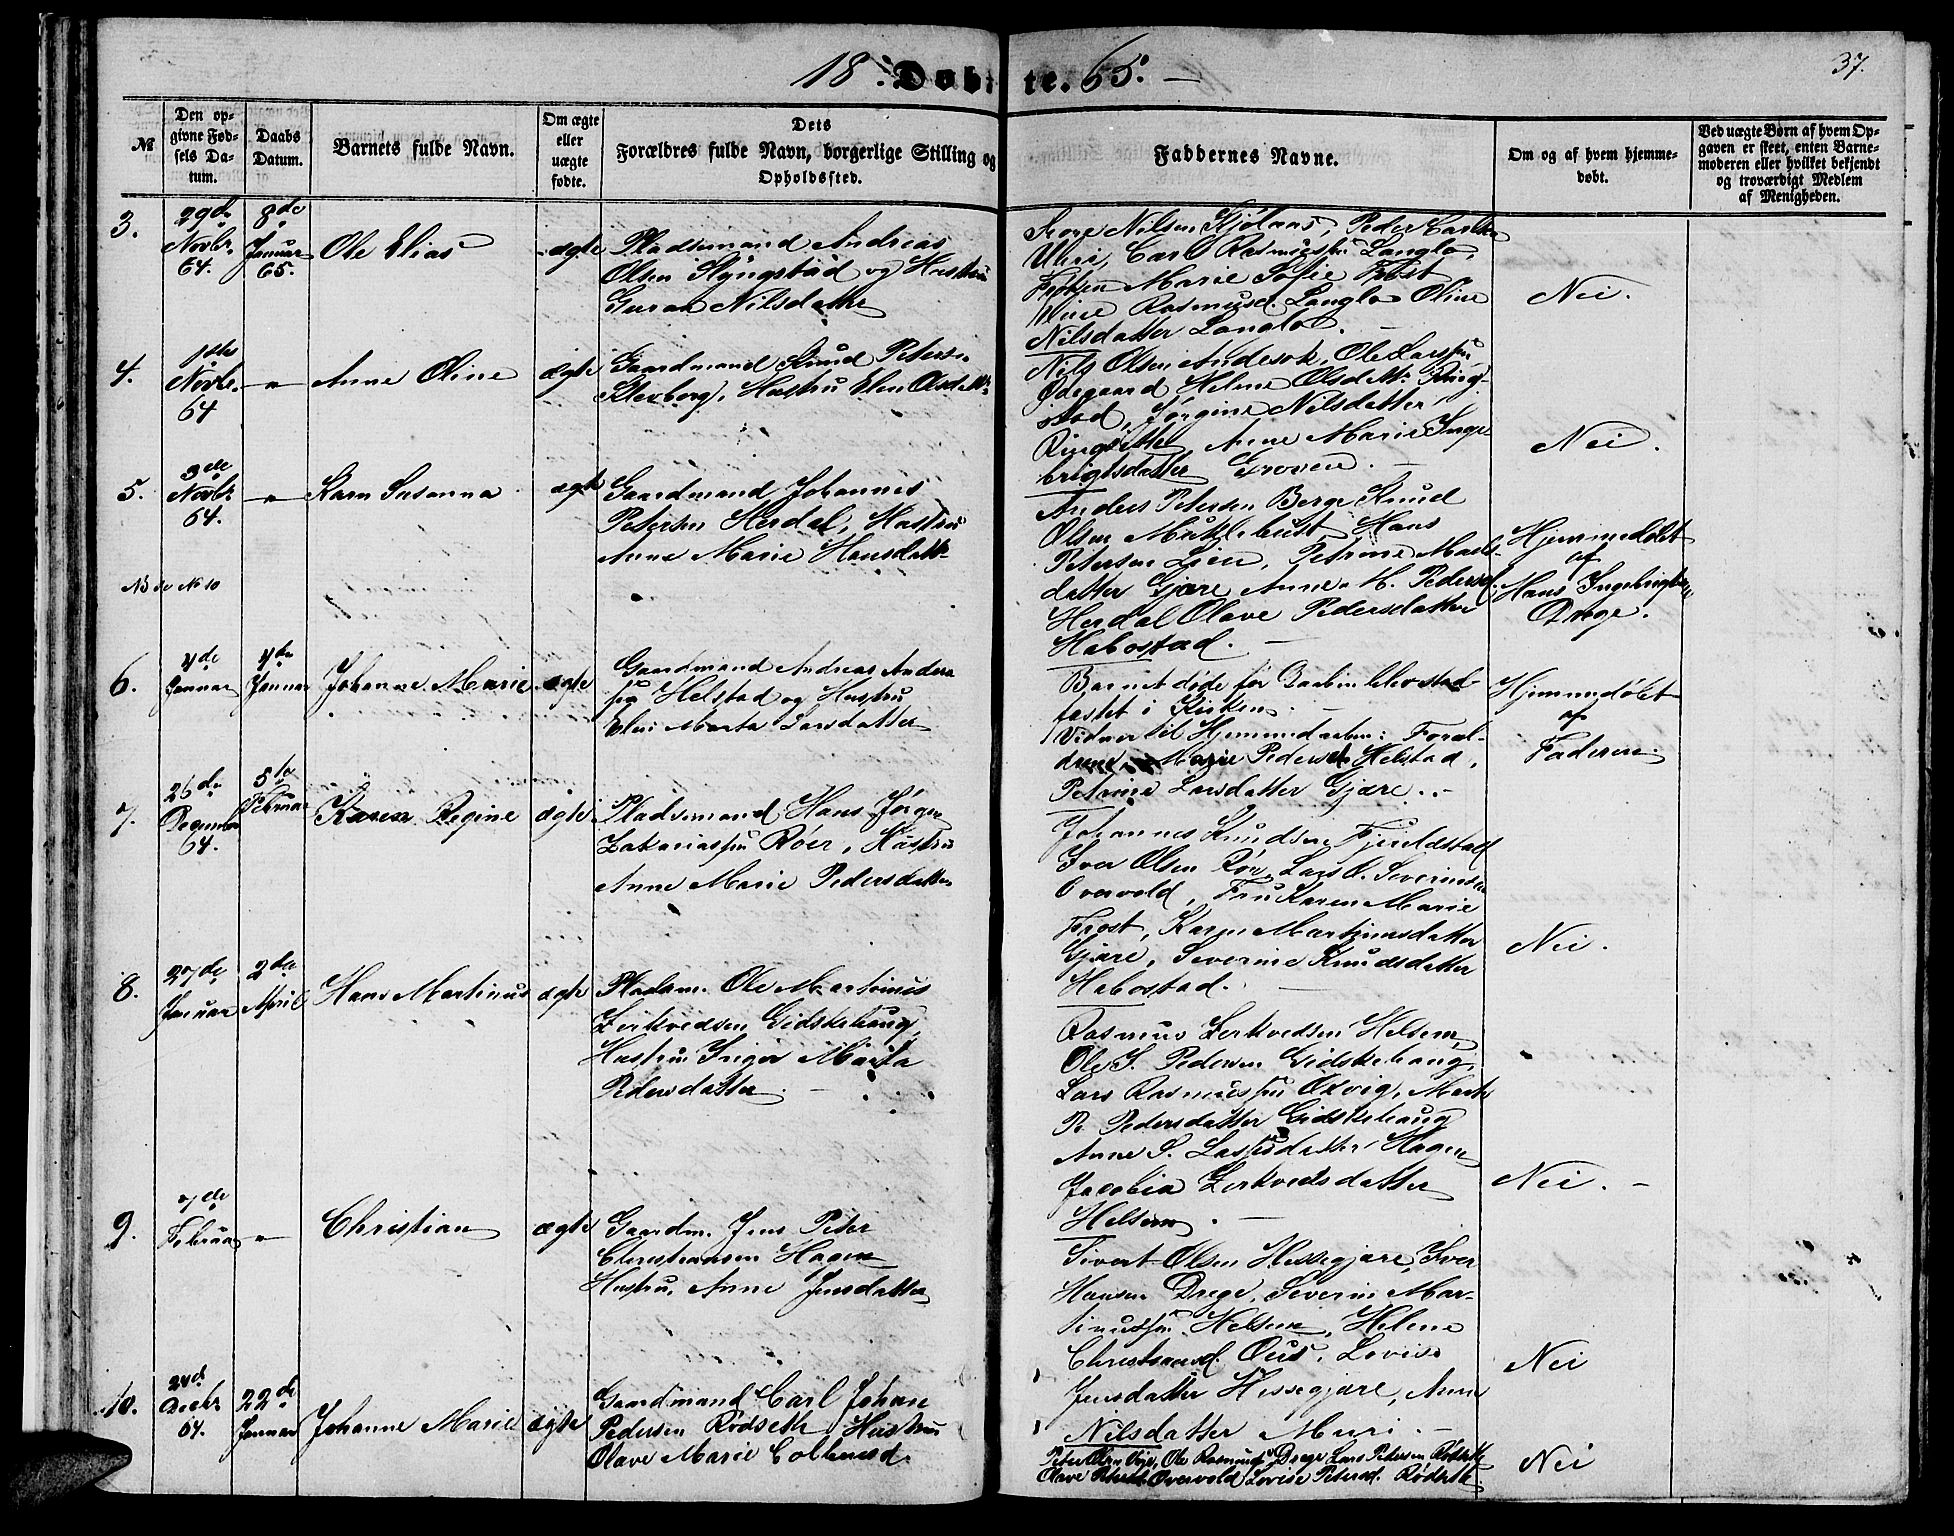 18 Døbte. 65. 37.
№
Den opgivne Fødsels Datum.
Daabs Datum.
Barnets fulde Navn.
Om ægte eller uægte fødte.
Dets Forældres fulde Navn, borgerlige Stilling og Opholdssted.
Faddernes Navne.
Om og af hvem hjemmedøbt.
Ved uægte Børn af hvem Opgaven er skeet, enten Barnemoderen eller hvilket bekjendt og troværdigt Medlem af Menigheden.
3.
29de
Novbr.
64.
8de
Januar
65.
Ole Elias
ægte
Pladsemand Andreas
Olsen og Hustru
Guran Nilsdatter
Nilsen Peder
Carl Rasmusssøn Langlo,
Frøken Marie Sofie Frost
Rasmusd. Langlo Oline
Nilsdatter Langlo.
Nei.
4.
Novbr.
64
"
Anne Oline
ægte
Gaardmand Knud Peters.
Hustru Elen Olsdattr.
Nils Olsen Ole Larssøn
Ødegaard, Helene Olsdattr. Ring-
stad, Jørgine Nilsdatter
Anne Marie Inge
brigtsdatter Groven.
Nei.
5.
3de
Novbr
64.
"
Karn Susanna
ægte
Gaardmand Johannes
Petersen Herdal, Hustru
Anne Marie Hansdatt.
Anders Petersen Berge Knud
Olsen Myklebust, Hans
Petersen Lien, Petrine Mads-
datter Gjære Anne M. Pedersd.
Herdal Olave Pedersdatter
Habostad.
Hjemmedøbt
af
Hans Ingebrigtsen
Drege.
NB se No 10
6.
4de
Januar
4de
Januar
Johanne Marie
ægte
Gaardmand Andreas Anders
søn Helstad og Hustru
Elen Marta Larsdatter
Barnet døde før Daaben blev stad-
fæstet i Kirken.
Vidner til Hjemmedaaben: Foræl-
drene, Marie Peders Helstad,
Petrine Larsdatter Gjære.
Hjemmedøbt
af
Faderen.
7.
26de
December
64.
5te
Februar
Karen Regine
ægte
Pladsemand Hans Jørgen
Zakariassøn Røer, Hustru
Anne Marie Pedersdatter
Johannes Knudsen Fjeldstad
Iver Olsen Røer, Lars O. Severinsen
Overvold, Fru Karen Marie
Frost, Karen Martinusdatter
Gjære, Severine Knudsdatter
Habostad.
Nei.
8.
27de
Januar
2den
April
Hans Martinus
ægte
Pladsm. Ole Martinus
Zerkvedsen Gidskehaug,
Hustru Inger Marta
Pedersdatter.
Rasmus Zerkvedsen Helsem,
Ole S. Pedersen Gidskehaug,
Lars Rasmussøn Øxvig,
P. Pedersdatter Gidskehaug
Anne S. Larsdatter Hagen
Jacobia Zerkvedsdatter
Helsem.
Nei.
9.
7de
Februar
"
Christian
ægte
Gaardm. Jens Peter
Christiansen Hagen
Hustru, Anne Jensdatter
Sivert Olsen Hessegjære, Iver
Hansen Drege, Severin Mar-
tinussøn Helsem, Helene
Christiansd. Ous, Lovise
Jensdatter Hessegjære, Anne
Nilsdatter Muri.
Nei
10.
24de
Decbr.
64.
22de
Januar
Johanne Marie
ægte
Gaardmand Carl Johan
Pedersen Rødseth, Hustru
Olave Marie
Peter Olsen Ole Rasmus Drege Lars Petersen Rødseth
Olave Overvold Lovise Petersd. Rødseth.
Nei